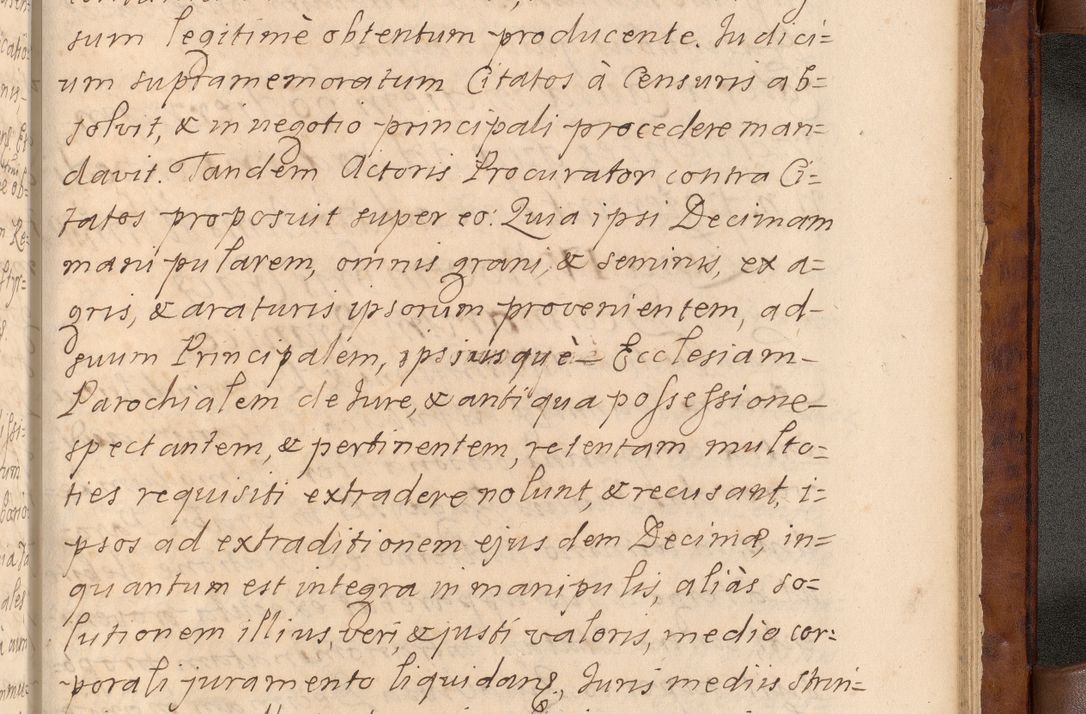 sum legitimè obtentum producente. Iudici=
um supramemoratum Citatos à Censuris ab=
solvit, & in negotio principali procedere man=
davit. Tandem Actoris Procurator contra Ci=
tatos proposuit super eo: Quia ipsi Decimam
manipularem, omnis grani, & seminis, ex a=
gris, & araturis ipsorum provenientem, ad-
suum Principalem, ipsiusquè- Ecclesiam-
Parochialem de Iure, & antiqua possessione-
spectantem, & pertinentem, retentam multo=
ties requisiti extradere nolunt, & recusant, i=
psos ad extraditionem ejusdem Decimæ, in=
quantum est integra in manipulis, aliàs so=
lutionem illius, veri, & justi valoris, medio cor=
porali juramento liquidand., Iuris mediis strin=